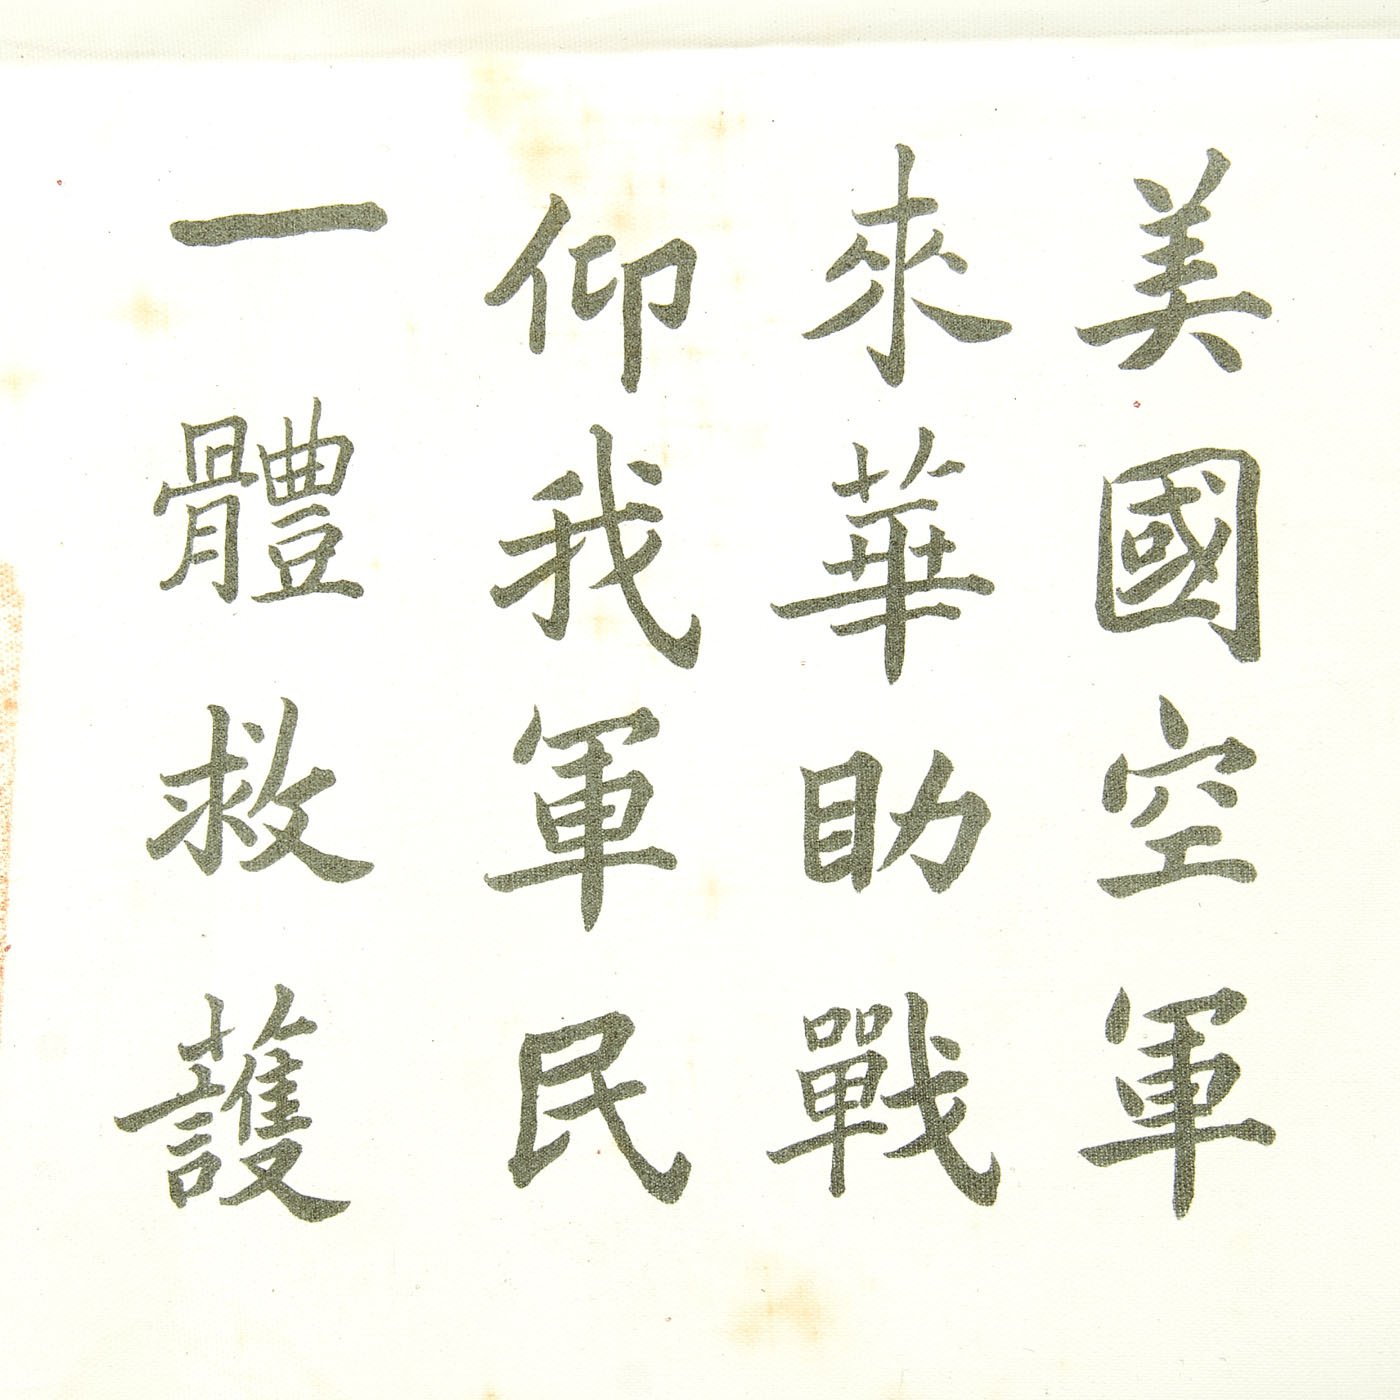 美國空軍
來華助戰
仰我軍民
一體救護